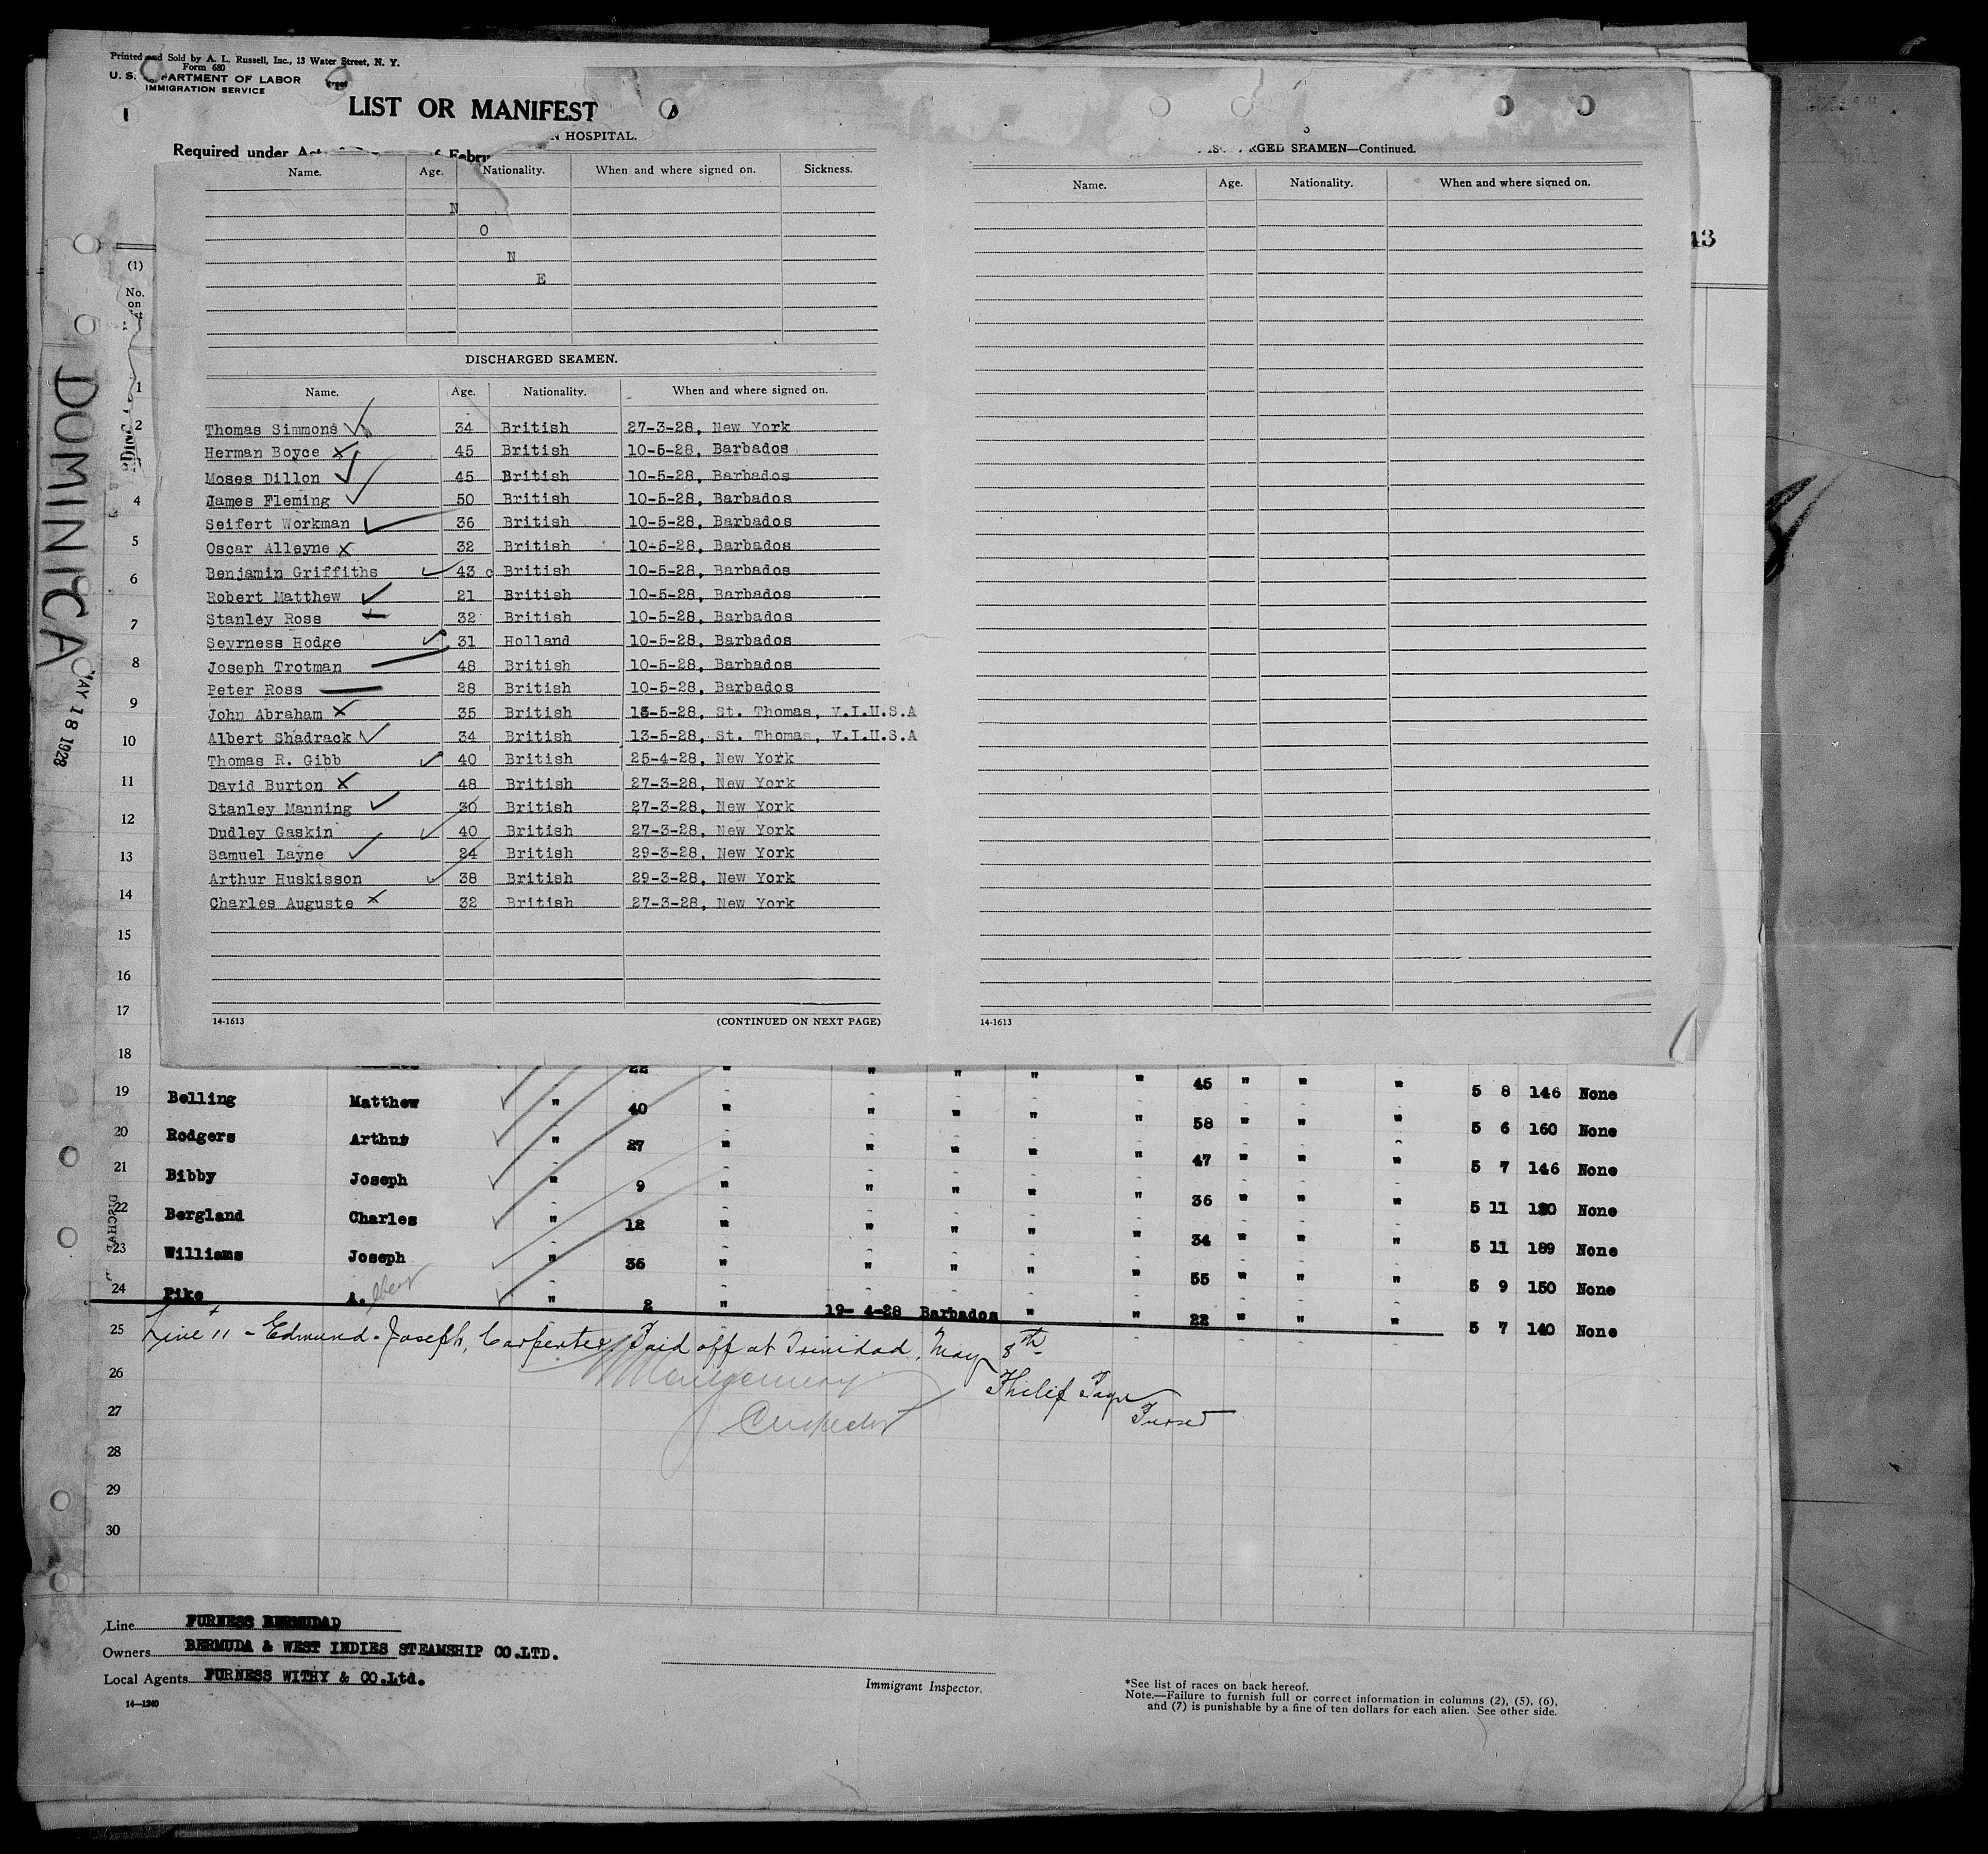 Printed and Sold by A. L. Russell, Inc., 13 Water Street, N. Y.
Form 680
U. S. DEPARTMENT OF LABOR
IMMIGRATION SERVICE
LIST OR MANIFEST
N HOSPITAL.
Required under Act of Febru
Name. Age. Nationality. When and where signed on. Sickness.
N
O
N
E
DISCHARGED SEAMEN.
Name. Age. Nationality. When and where signed on.
Thomas Simmons 34 British 27-3-28, New York
Herman Boyce 45 British 10-5-28, Barbados
Moses Dillon 45 British 10-5-28, Barbados
James Fleming 50 British 10-5-28, Barbados
Seifert Workman 36 British 10-5-28, Barbados
Oscar Alleyne 32 British 10-5-28, Barbados
Benjamin Griffiths 43 British 10-5-28, Barbados
Robert Matthew 21 British 10-5-28, Barbados
Stanley Ross 32 British 10-5-28, Barbados
Seyrness Hodge 31 Holland 10-5-28, Barbados
Joseph Trotman 48 British 10-5-28, Barbados
Peter Ross 28 British 10-5-28, Barbados
John Abraham 35 British 13-5-28, St. Thomas, V.I.U.S.A
Albert Shadrack 34 British 13-5-28, St. Thomas, V.I.U.S.A
Thomas R. Gibb 40 British 25-4-28, New York
David Burton 48 British 27-3-28, New York
Stanley Manning 30 British 27-3-28, New York
Dudley Gaskin 40 British 27-3-28, New York
Samuel Layne 24 British 29-3-28, New York
Arthur Huskisson 38 British 29-3-28, New York
Charles Auguste 32 British 27-3-28, New York
14-1613 (CONTINUED ON NEXT PAGE)
3
DISCHARGED SEAMEN—Continued.
Name. Age. Nationality. When and where signed on.
14-1613
13
DOMINICA
MAY 18 1928
(1)
No.
on
1
2
3
4
5
6
7
8
9
10
11
12
13
14
15
16
17
18
22 " " " " " 45 " " "
19 Belling Matthew " 40 " " " " " 58 " " " 5 8 146 None
20 Rodgers Arthur " 27 " " " " " 47 " " " 5 6 160 None
21 Bibby Joseph " 9 " " " " " 36 " " " 5 7 146 None
22 Bergland Charles " 12 " " " " " 34 " " " 5 11 180 None
23 Williams Joseph " 36 " " " " " 55 " " " 5 11 189 None
5 9 150 None
24 Pike A. lbert " 2 " 19- 4-28 Barbados " " 22 " " " 5 7 140 None
25 Line 11 - Edmund - Joseph, Carpenter, Paid off at Trinidad, May 8th
26 Montgomery Philip Page
27 Inspector Purser
28
29
30
Line FURNESS BERMUDAD
Owners BERMUDA & WEST INDIES STEAMSHIP CO.LTD.
Local Agents FURNESS WITHY & CO.Ltd.
14—1240
Immigrant Inspector.
*See list of races on back hereof.
Note.—Failure to furnish full or correct information in columns (2), (5), (6),
and (7) is punishable by a fine of ten dollars for each alien. See other side.